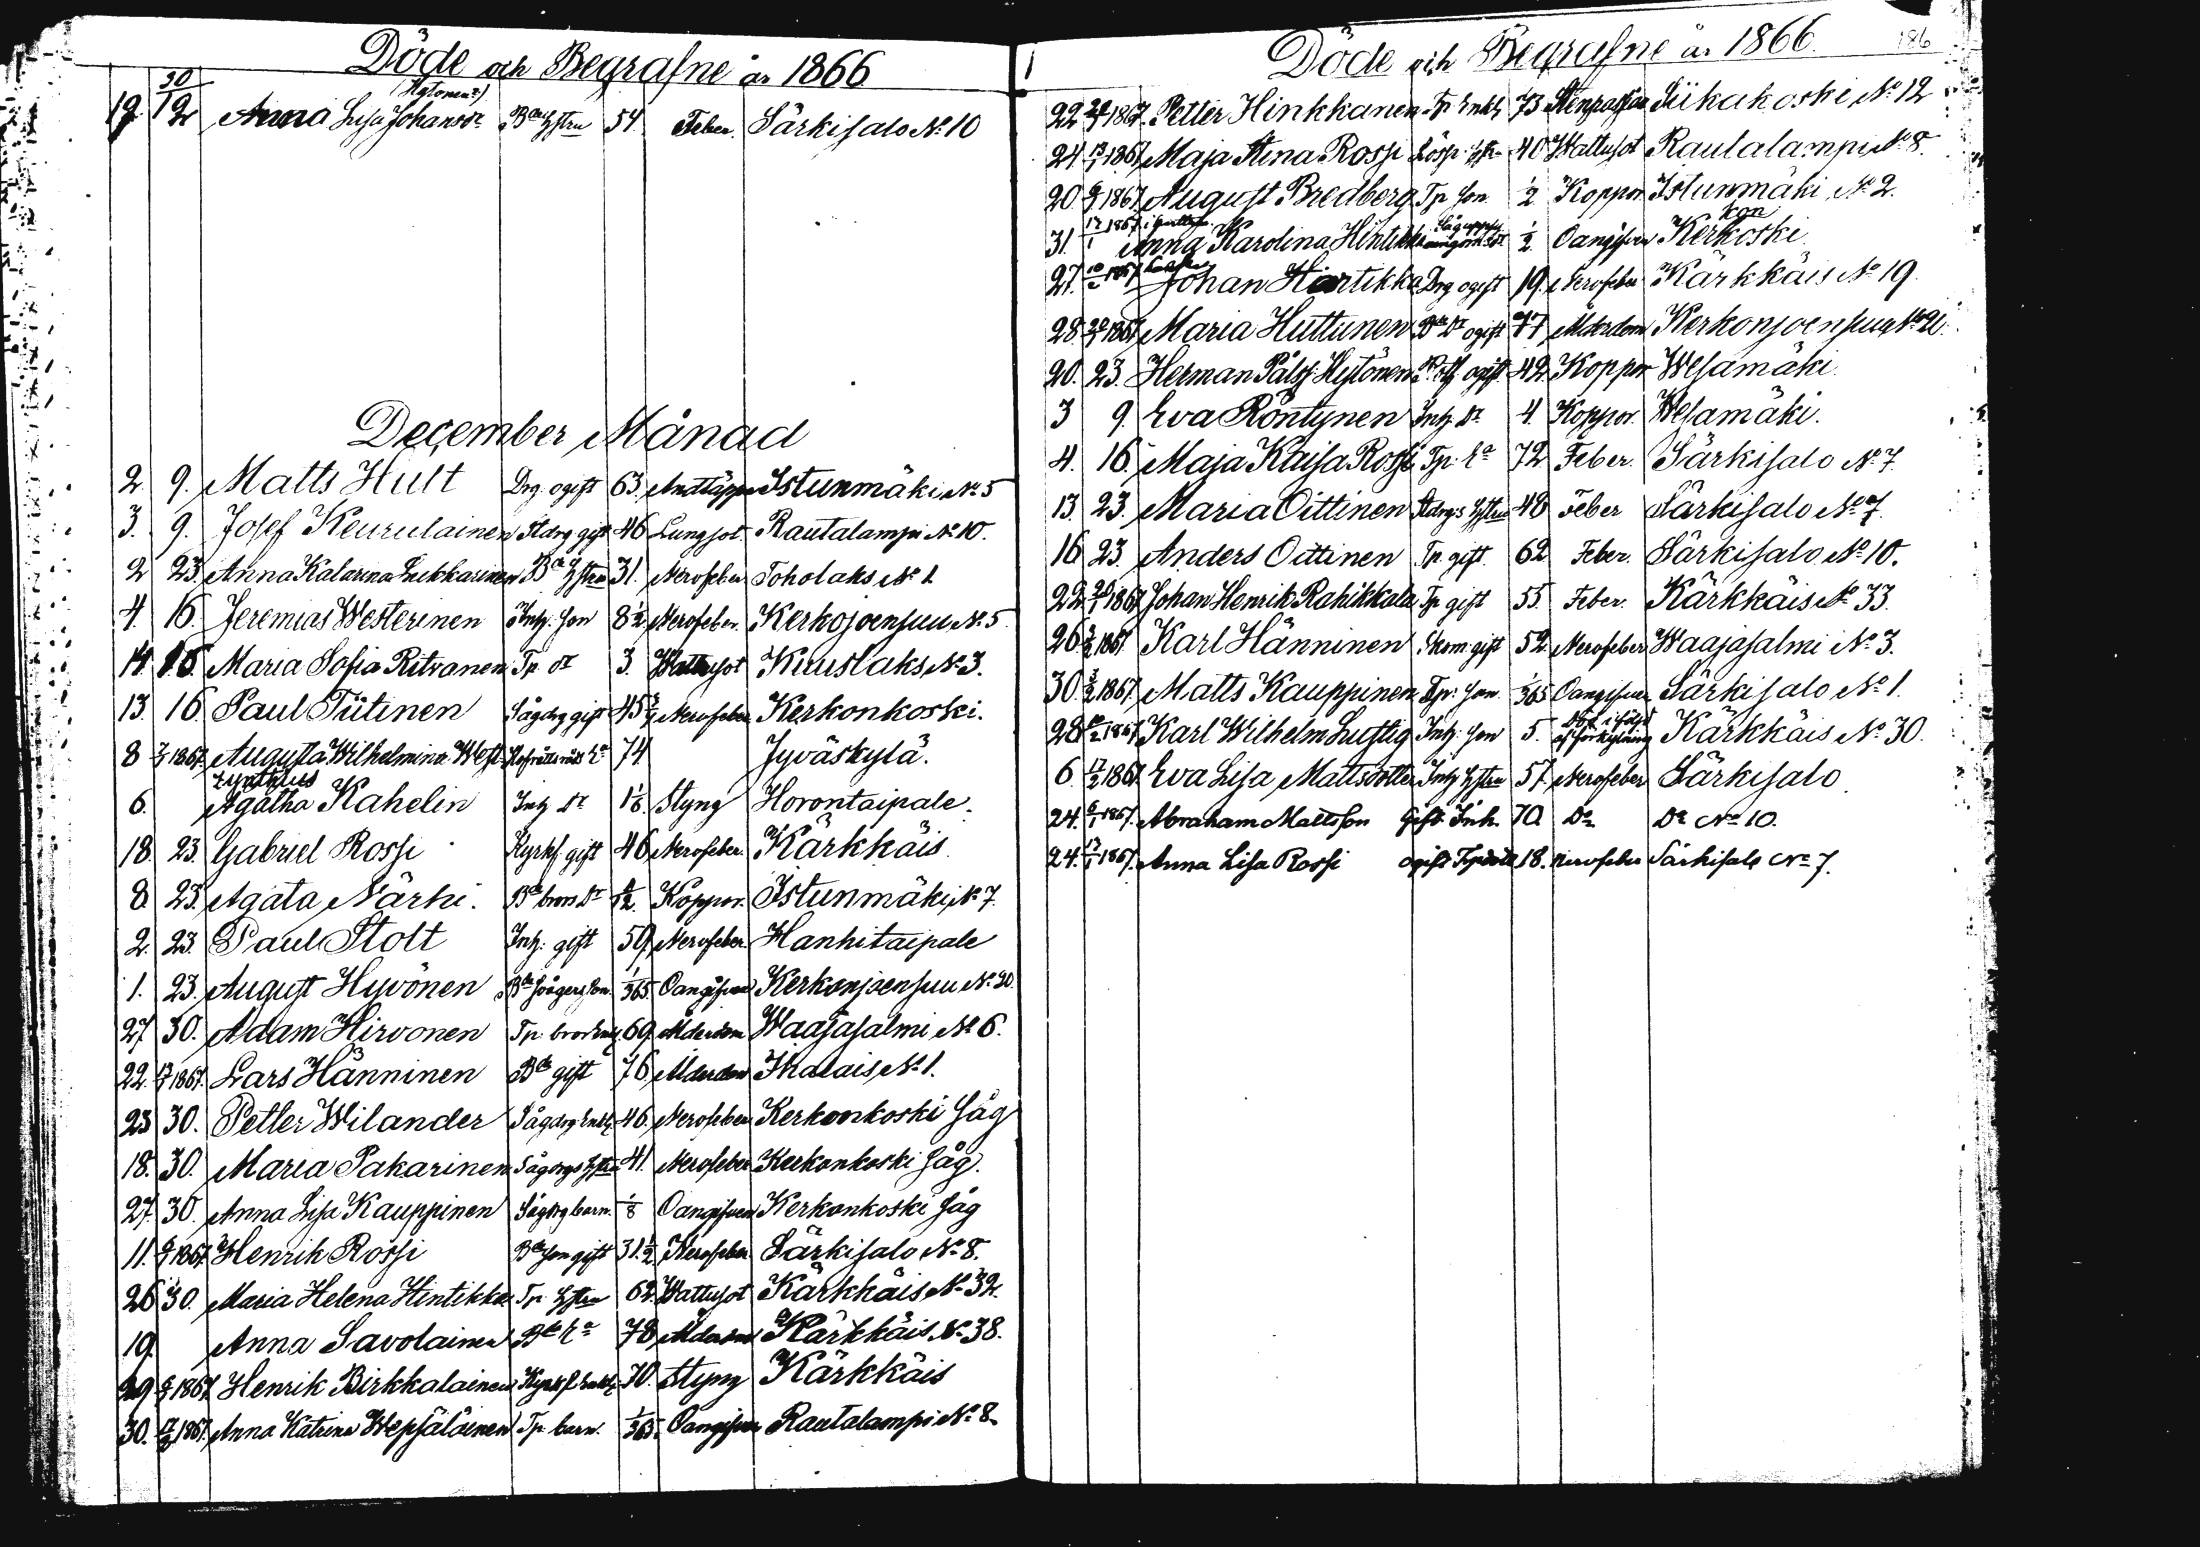 Döde och Begrafne år 1866
19. 30/12 Anna Lisa Johansdr Bde hstru 54. Feber. Särkisalo No 10
December Månad
2. 9. Matts Hult Drg ogift 63. Andtäppa Istunmäki No 5
3. 9. Josef Keurulainen Stdrg gift 46 Lungsot Rautalampi No 10.
2 23. Anna Katarina Bde hstru 31. Nervfeber Toholaks No 1
4 16. Jeremias Westerinen Inh. son 8½ Nervfeber. Kerkojoensuu No 5
14. 16. Maria Sofia Ritvanen Tp dr 3 Wattusot Kuuslaks No 3.
13. 16. Paul Tiitinen Sågdrg gift 45 Nervfeber Kerkonkoski.
8 1867. Augusta Wilhelmina Hofrättsråds Ea 74 Jyväskylä.
6. Agatha Kahelin Inh Dr 1/6. Styng Horontaipale.
18. 23. Gabriel Rossi Kyrkf. gift 46 Nervfeber. Kärkkäis
8. 23. Agata Närhi. Bde brors Dr Koppor. Istunmäki No 7.
2. 23. Paul Stolt Inh: gift 59. Nervfeber. Hanhitaipale
1. 23. August Hyvönen Bde son. 1/365. Oangifven Kerkonjoensuu No 20.
27. 30. Adam Hirvonen Tp. bror Enkl. 69. Ålderdom Waajasalmi No 6.
22. 1867. Lars Hänninen Bde gift 76. Ålderdom No 1.
23 30. Petter Wilander Sågdrg Enkl. 46. Nervfeber Kerkonkoski såg
18. 30. Maria Pakarinen Sågdrgs hstru 41. Nervfeber Kerkonkoski såg.
27. 30. Anna Lisa Kauppinen Sågdrg barn. 1/8 Oangifven Kerkonkoski såg
11. 6/1 1867. Henrik Rossi Bde son gift 31½ Nervfeber Särkisalo No 8.
26 30. Maria Helena Hintikka Tp hstru 62. Wattusot Kärkkäis No 32.
19. Anna Savolainen Bde Ea 78 Ålderdom Kärkkäis No 38.
29 6/1 1867. Henrik Birkkalainen Kyrkf. Enkl. 70. Styng Kärkkäis
30. 17/2 1867. Anna Katrina Wepsäläinen Tp barn. 1/365. Oangifven Rautalampi No 8.
Döde och Begrafne år 1866.
186
22 1867. Petter Hinkkanen Tp Enkl. 73 Stenpassion Siikakoski No 12
24. 13/1 1867. Maja Stina Rossi Lösp. 40 Wattusot Rautalampi No 8.
20. 6/1 1867. August Bredberg Tp son. ½ Koppor. Istunmäki No 2.
31. 17/1 1867. Anna Karolina Hintikka ½ Oangifven Kerkonkoski
27. 10/2 1867. Johan Hintikka Drg ogift 19. Nervfeber Kärkkäis No 19.
28. 20/1 1867. Maria Huttunen Bde Dr ogift 77 Ålderdom Kerkonjoensuu No 20.
20. 23. Herman Pålss. Hytönen ogift 42. Koppor Wesamäki.
3 9. Eva Röntynen Inh. Dr 4. Koppor. Wesamäki.
4. 16. Maja Kaisa Rossi Tp. Ea 72 Feber. Särkisalo No 7.
13. 23. Maria Oittinen Stdrgs hstru 48 Feber Särkisalo No 7.
16 23. Anders Oittinen Tp gift. 62 Feber. Särkisalo No 10.
22. 20/1 1867. Johan Henrik Rahikkala Tp gift 55. Feber. Kärkkäis No 33.
26 3/2 1867. Karl Hänninen Skom gift 52. Nervfeber Waajasalmi No 3.
30. 3/2 1867. Matts Kauppinen Tp: son. 1/365 Oangifven Särkisalo No 1.
28. 1867. Karl Wilhelm Luftig Inh. son 5. Död i följd af förkylning Kärkkäis No 30.
6. 17/2 1867. Eva Lisa Mattsdotter Inh hstru 57. Nervfeber Särkisalo
24. 6/1 1867. Abraham Mattsson Gift Inh. 70. Do Do No 10.
24. 13/1 1867. Anna Lisa Rossi ogift 18. Nervfeber Särkisalo No 7.